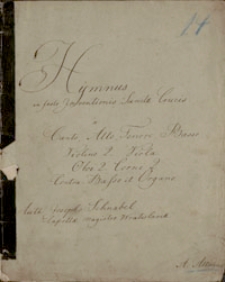 14
Hymnus
in festo Inventionis Sanctae Crucis
a
Canto, Alto, Tenore, Basso
Violino 2. Viola
Oboe 2. Corni 2.
Contra Basso et Organo
Joseph Schnabel
Capellae magistro